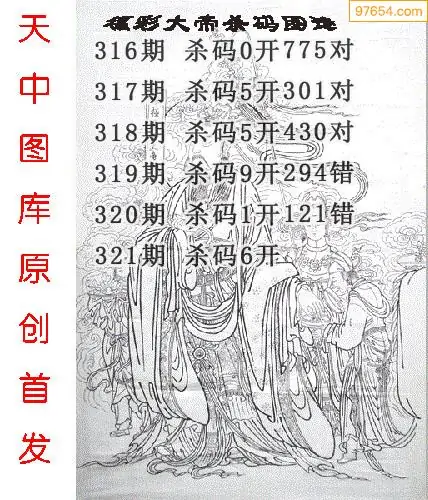 97654.com
福彩大帝杀码图迷
316期 杀码0开775对
317期 杀码5开301对
318期 杀码5开430对
319期 杀码9开294错
320期 杀码1开121错
321期 杀码6开
天中图库原创首发